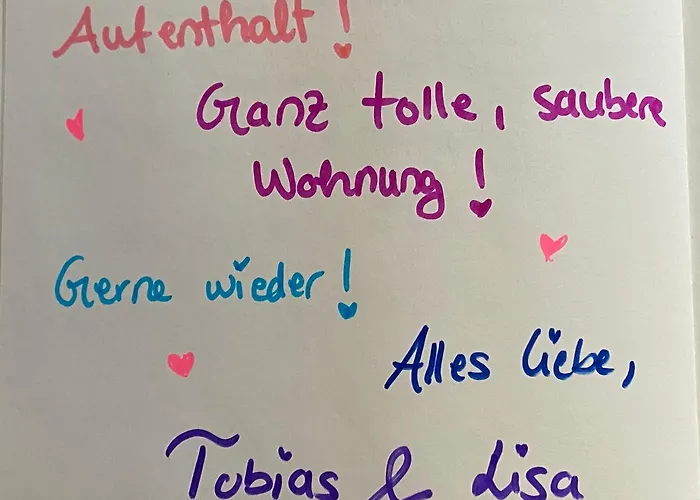 Aufenthalt!
Ganz tolle, saubere
Wohnung!
Gerne wieder!
Alles Liebe,
Tobias & Lisa